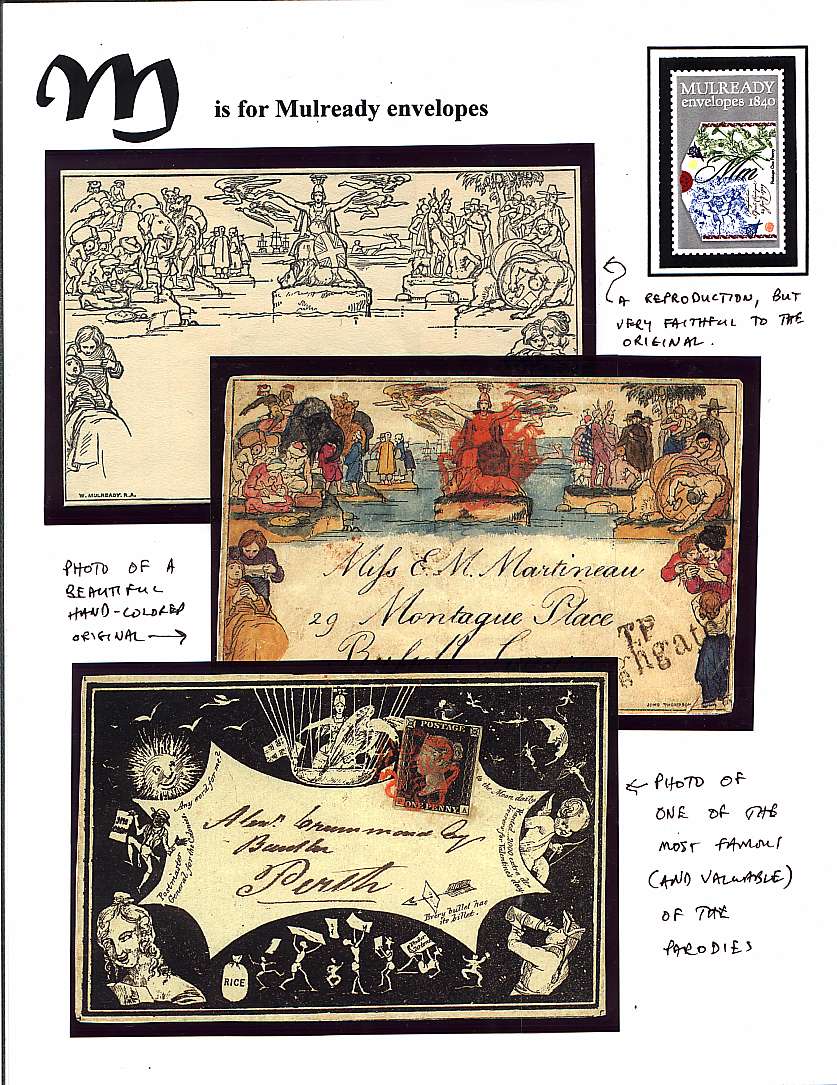 M is for Mulready envelopes
MULREADY
envelopes 1840
Postage One Penny
A REPRODUCTION, BUT
VERY FAITHFUL TO THE
ORIGINAL.
W. MULREADY. R.A.
PHOTO OF A
BEAUTIFUL
HAND-COLORED
ORIGINAL
Miss E. M. Martineau
29 Montague Place
T.P
ghgat
JOHN THOMPSON
POSTAGE
ONE PENNY
A
Any word for me?
Postmaster
General for the Colonies
to the Moon daily
Wanted, 2000 extra do
every Valentines day
Perth
Every bullet has
its billet.
RICE
PHOTO OF
ONE OF THE
MOST FAMOUS
(AND VALUABLE)
OF THE
PARODIES